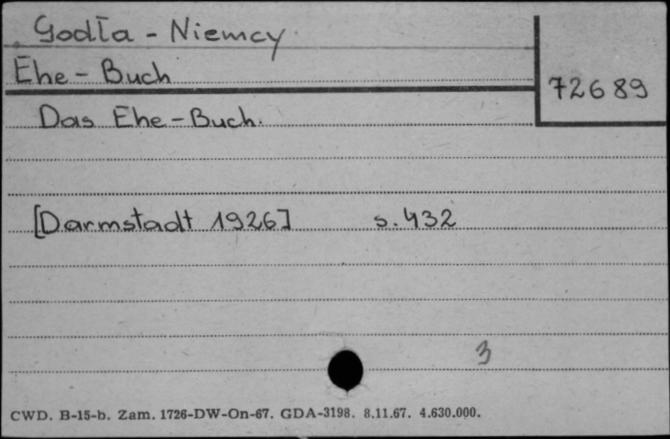 Godła - Niemcy
Ehe - Buch
72689
Das Ehe - Buch.
[Darmstadt 1926] s. 432
3
CWD. B-15-b. Zam. 1726-DW-On-67. GDA-3198. 8.11.67. 4.630.000.